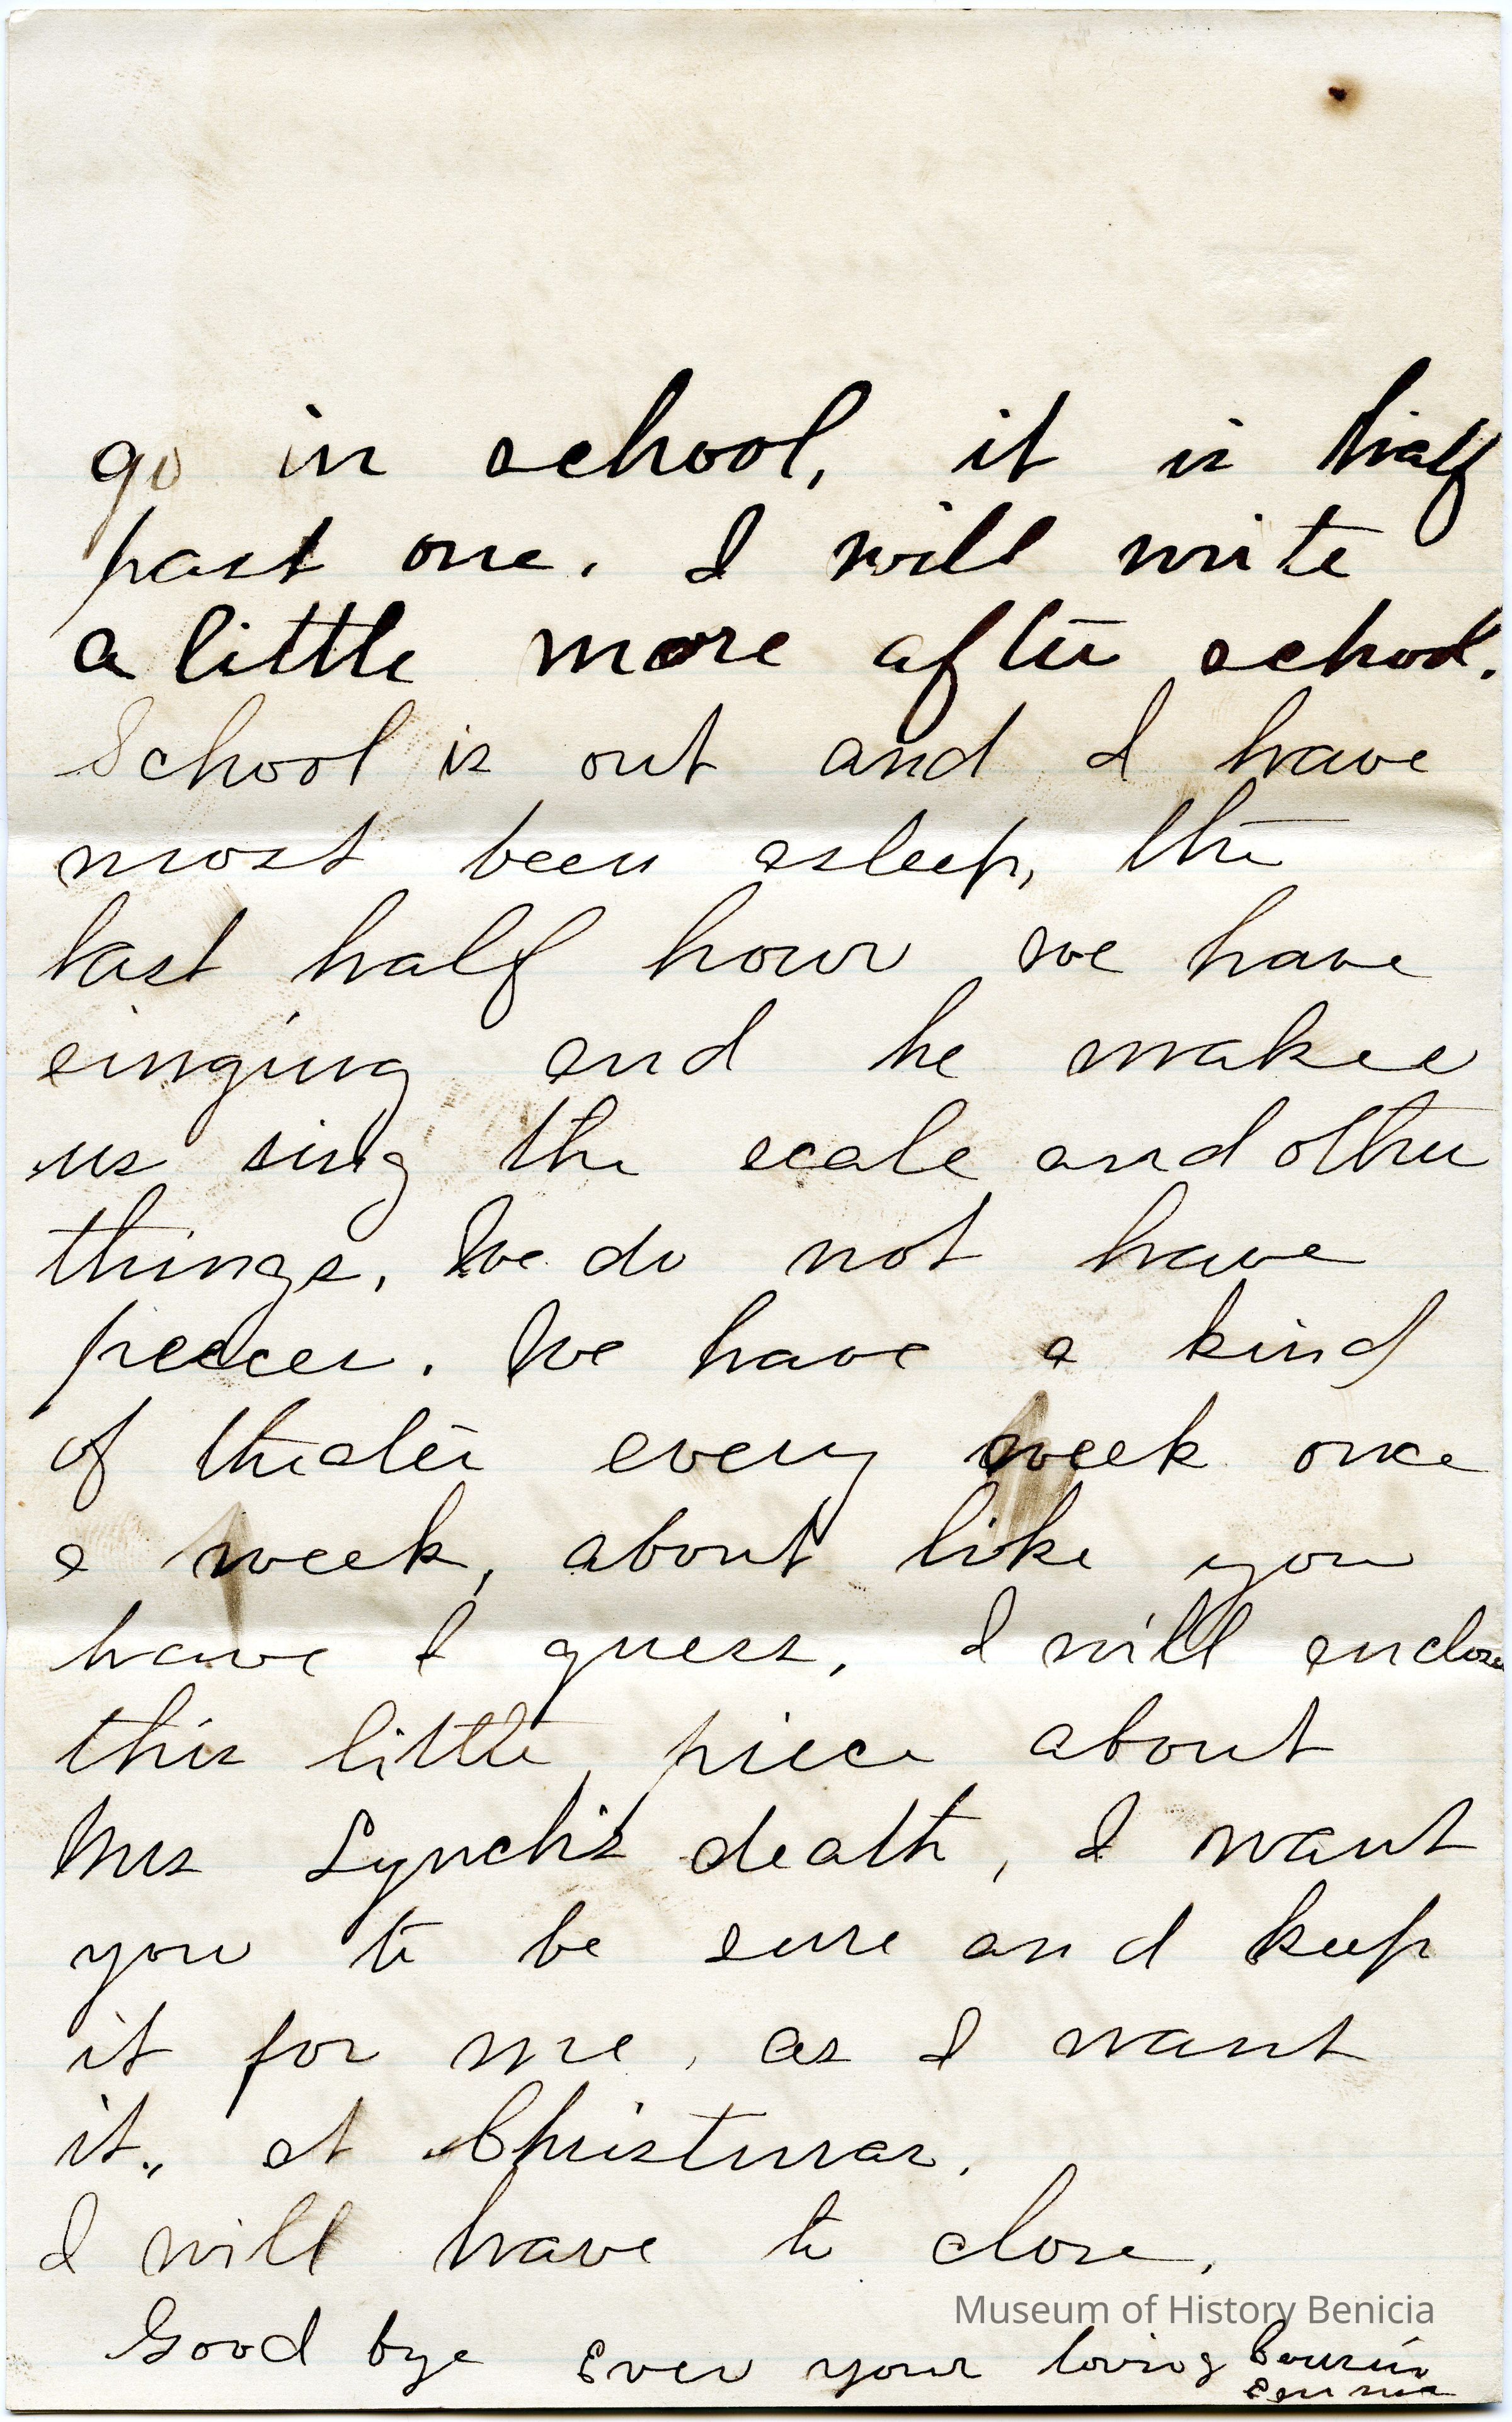 go in school, it is half
past one. I will write
a little more after school.
School is out and I have
most been asleep, the
last half hour we have
singing and he makes
us sing the scale and other
things. We do not have
peeces. We have a kind
of theater every week once
a week, about like you
have I guess, I will enclose
this little piece about
Mrs Lynch's death, I want
you to be sure and keep
it for me, as I want
it., at Christmas.
I will have to close,
Good bye Ever your loving Cousin
Emma
Museum of History Benicia